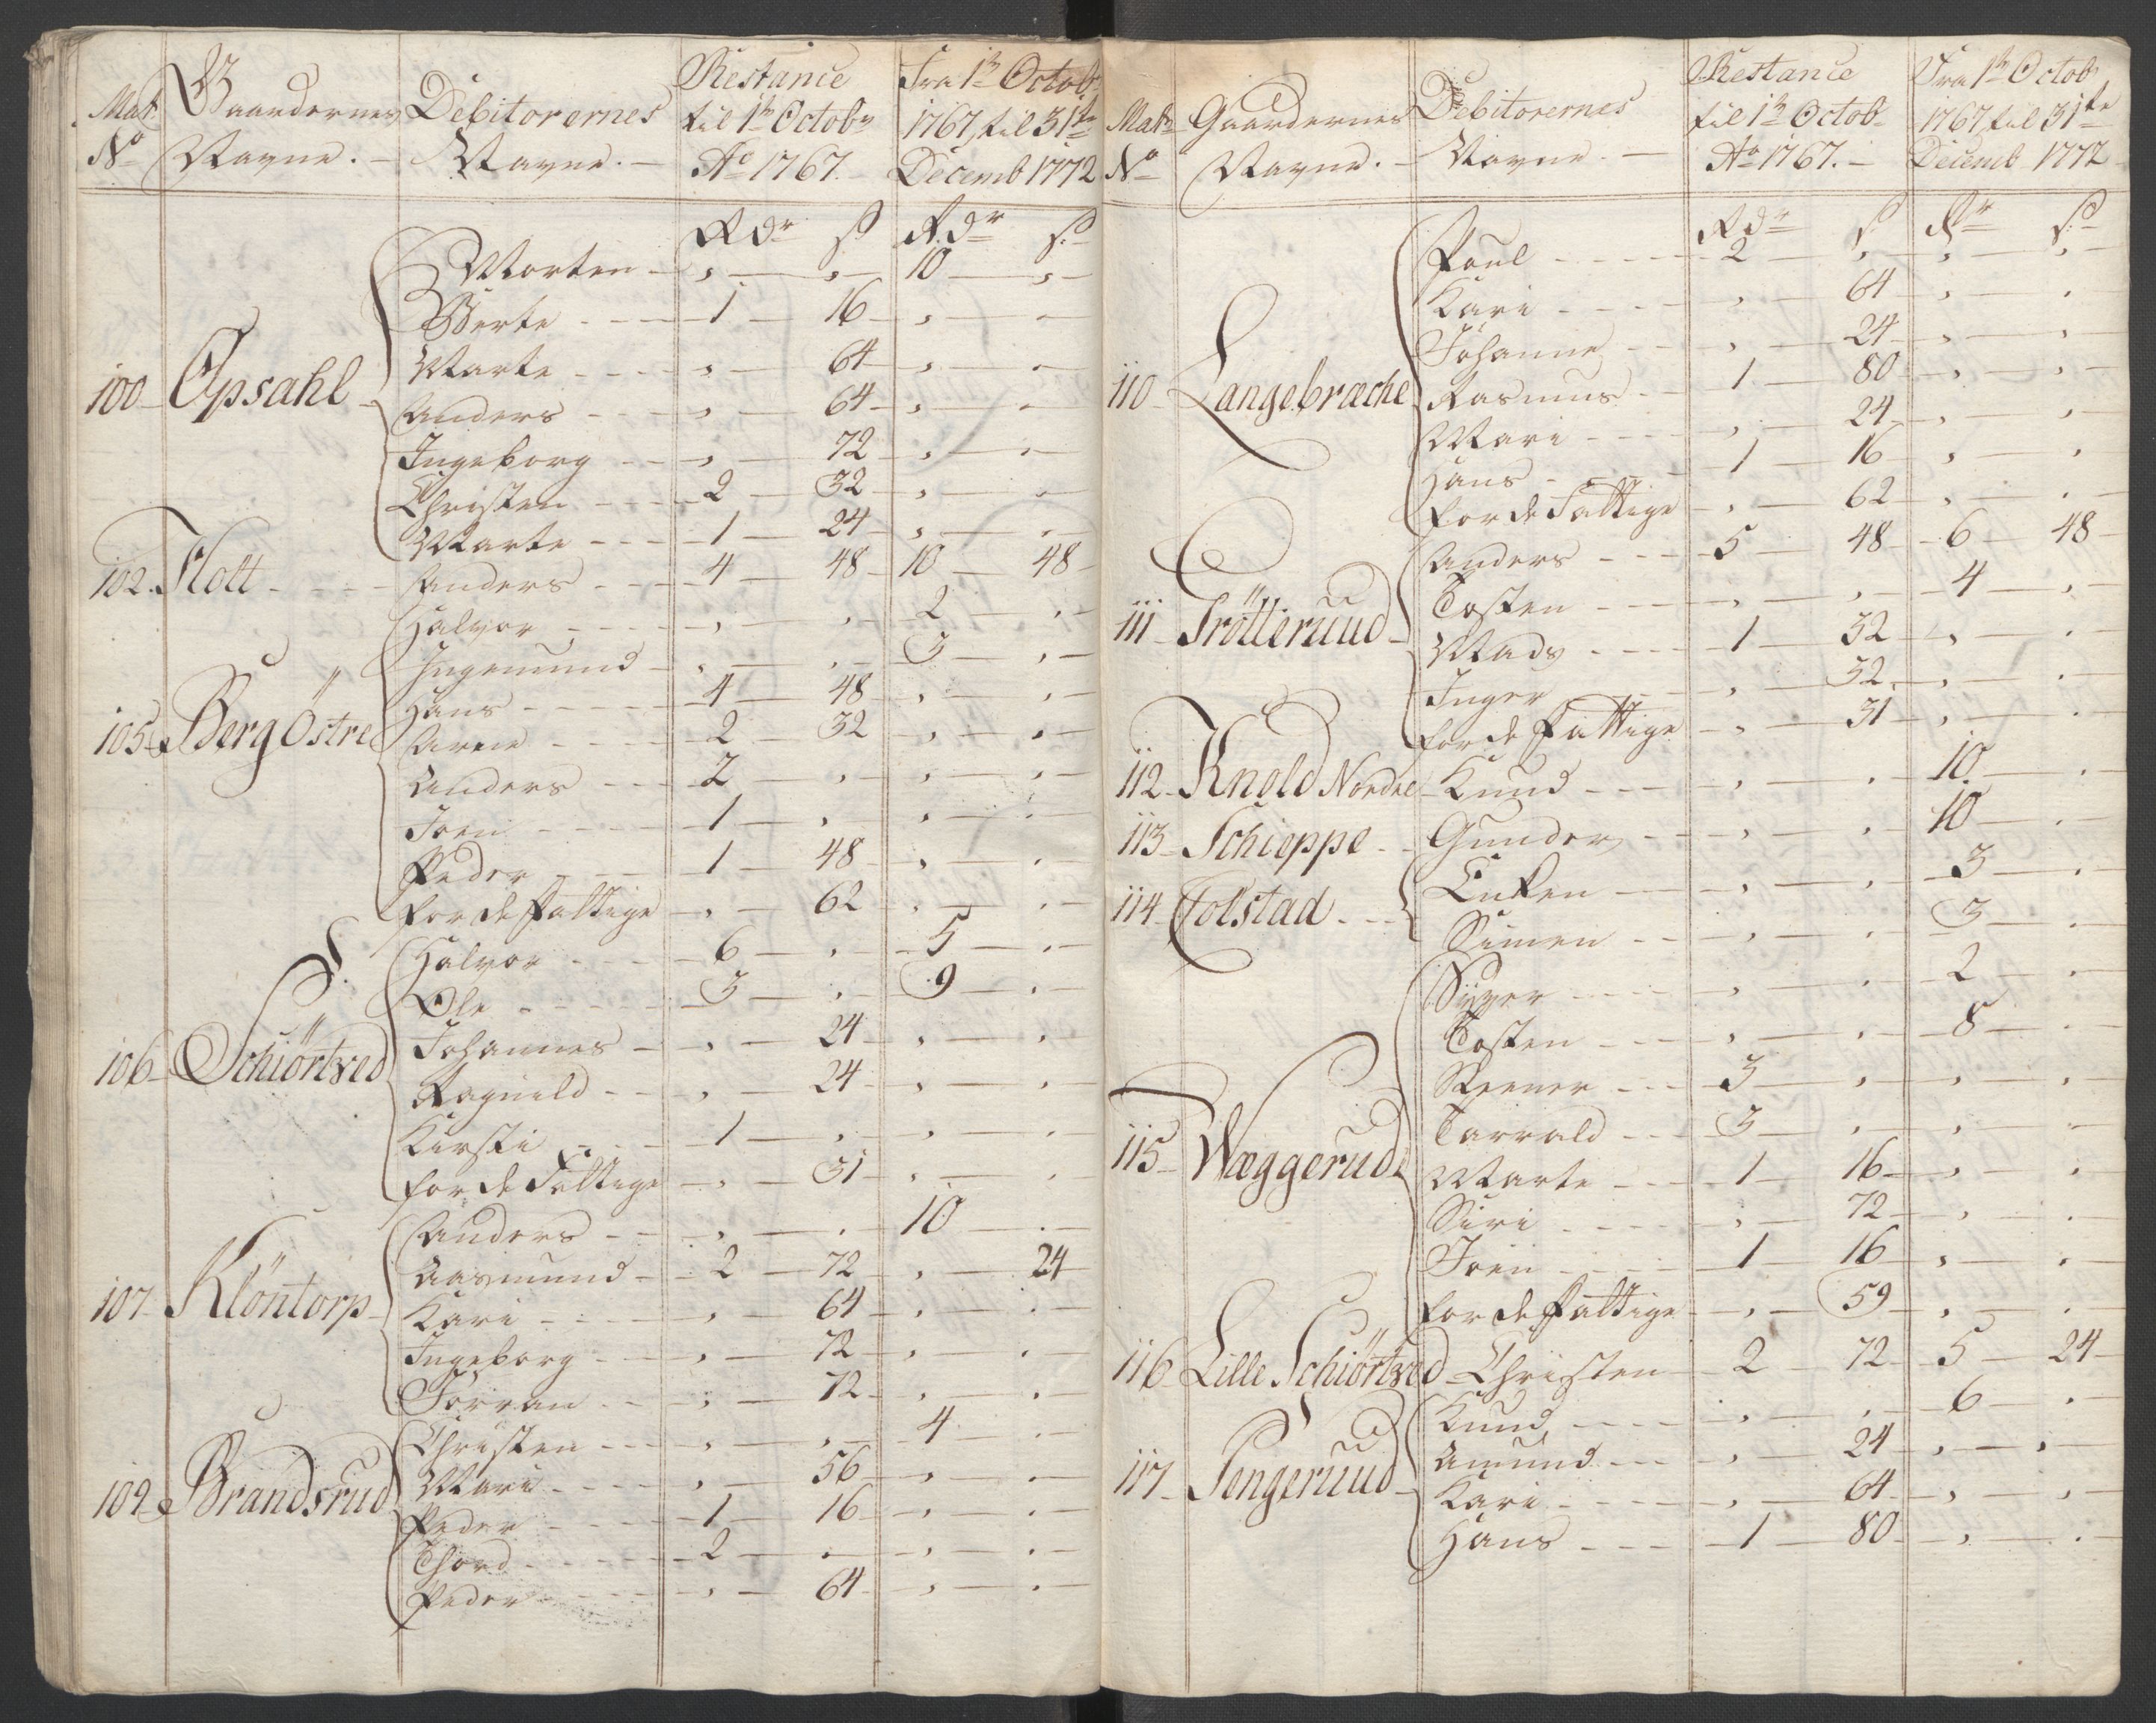 Mat: N° | Gaardernes Navne. | Debitorernes Navne. | Restance til 1te Octobr A° 1767. | Fra 1te Octobr 1767, til 31te Decemb 1772
Rdr ß | Rdr ß
100 Opsahl
Morten - , - , - 10 - ,
Berte - 1 - 16 - , - ,
Marte - , - 64 - , - ,
Anders - , - 64 - , - ,
Ingeborg - , - 72 - , - ,
Christen - 2 - 32 - , - ,
Marte - 1 - 24 - , - ,
102. Flott - Anders - 4 - 48 - 10 - 48
105 Berg Östre
Halvor - , - , - 2 - ,
Ingemund - , - , - 3 - ,
Hans - 4 - 48 - , - ,
Arne - 2 - 32 - , - ,
Anders - 2 - , - , - ,
Joen - 1 - , - , - ,
Peder - 1 - 48 - , - ,
for de Fattige - , - 62 - , - ,
106 Schiörtved
Halvor - 6 - , - 5 - ,
Ole - 3 - , - 9 - ,
Johannes - , - 24 - , - ,
Ragnild - , - 24 - , - ,
Kirsti - 1 - , - , - ,
for de Fattige - , - 31 - , - ,
107 Klöntorp
Anders - , - , - 10 - ,
Aasmund - 2 - 72 - , - 24
Kari - , - 64 - , - ,
Ingeborg - , - 72 - , - ,
Jörran - , - 72 - , - ,
109 Brandsrud
Christen - , - , - 4 - ,
Mari - , - 56 - , - ,
Peder - 1 - 16 - , - ,
Thord - 2 - , - , - ,
Peder - , - 64 - , - ,
Matr N° | Gaardernes Navne. | Debitorernes Navne. | Restance til 1te Octob A° 1767. | Fra 1te Octob 1767, til 31te Decemb 1772
Rdr ß | Rr ß
110 Langebræche
Poul - 2 - , - , - ,
Kari - , - 64 - , - ,
Johanne - , - 24 - , - ,
Rasmus - 1 - 80 - , - ,
Mari - , - 24 - , - ,
Hans - 1 - 16 - , - ,
for de Fattige - , - 62 - , - ,
111 Trötterund
Anders - 5 - 48 - 6 - 48
Tosten - , - , - 4 - ,
Mads - 1 - 32 - , - ,
Inger - , - 32 - , - ,
for de Fattige - , - 31 - , - ,
112 Knold Nordre - Knud - , - , - 10 - ,
113 Schieppe - Gunder - , - , - 10 - ,
114 Tolstad
- , - , - 3 - ,
Simen - , - , - 3 - ,
115 Wæggerud
Syver - , - , - 2 - ,
Tosten - , - , - 8 - ,
- 3 - , - , - ,
Tarrald - 3 - , - , - ,
Marte - 1 - 16 - , - ,
Siri - , - 72 - , - ,
Joen - 1 - 16 - , - ,
for de Fattige - , - 59 - , - ,
116 Lille Schiörtved - Christen - 2 - 72 - 5 - 24
117 Sengeruud
Knud - , - , - 6 - ,
Amund - , - 24 - , - ,
Kari - , - 64 - , - ,
Hans - 1 - 80 - , - ,